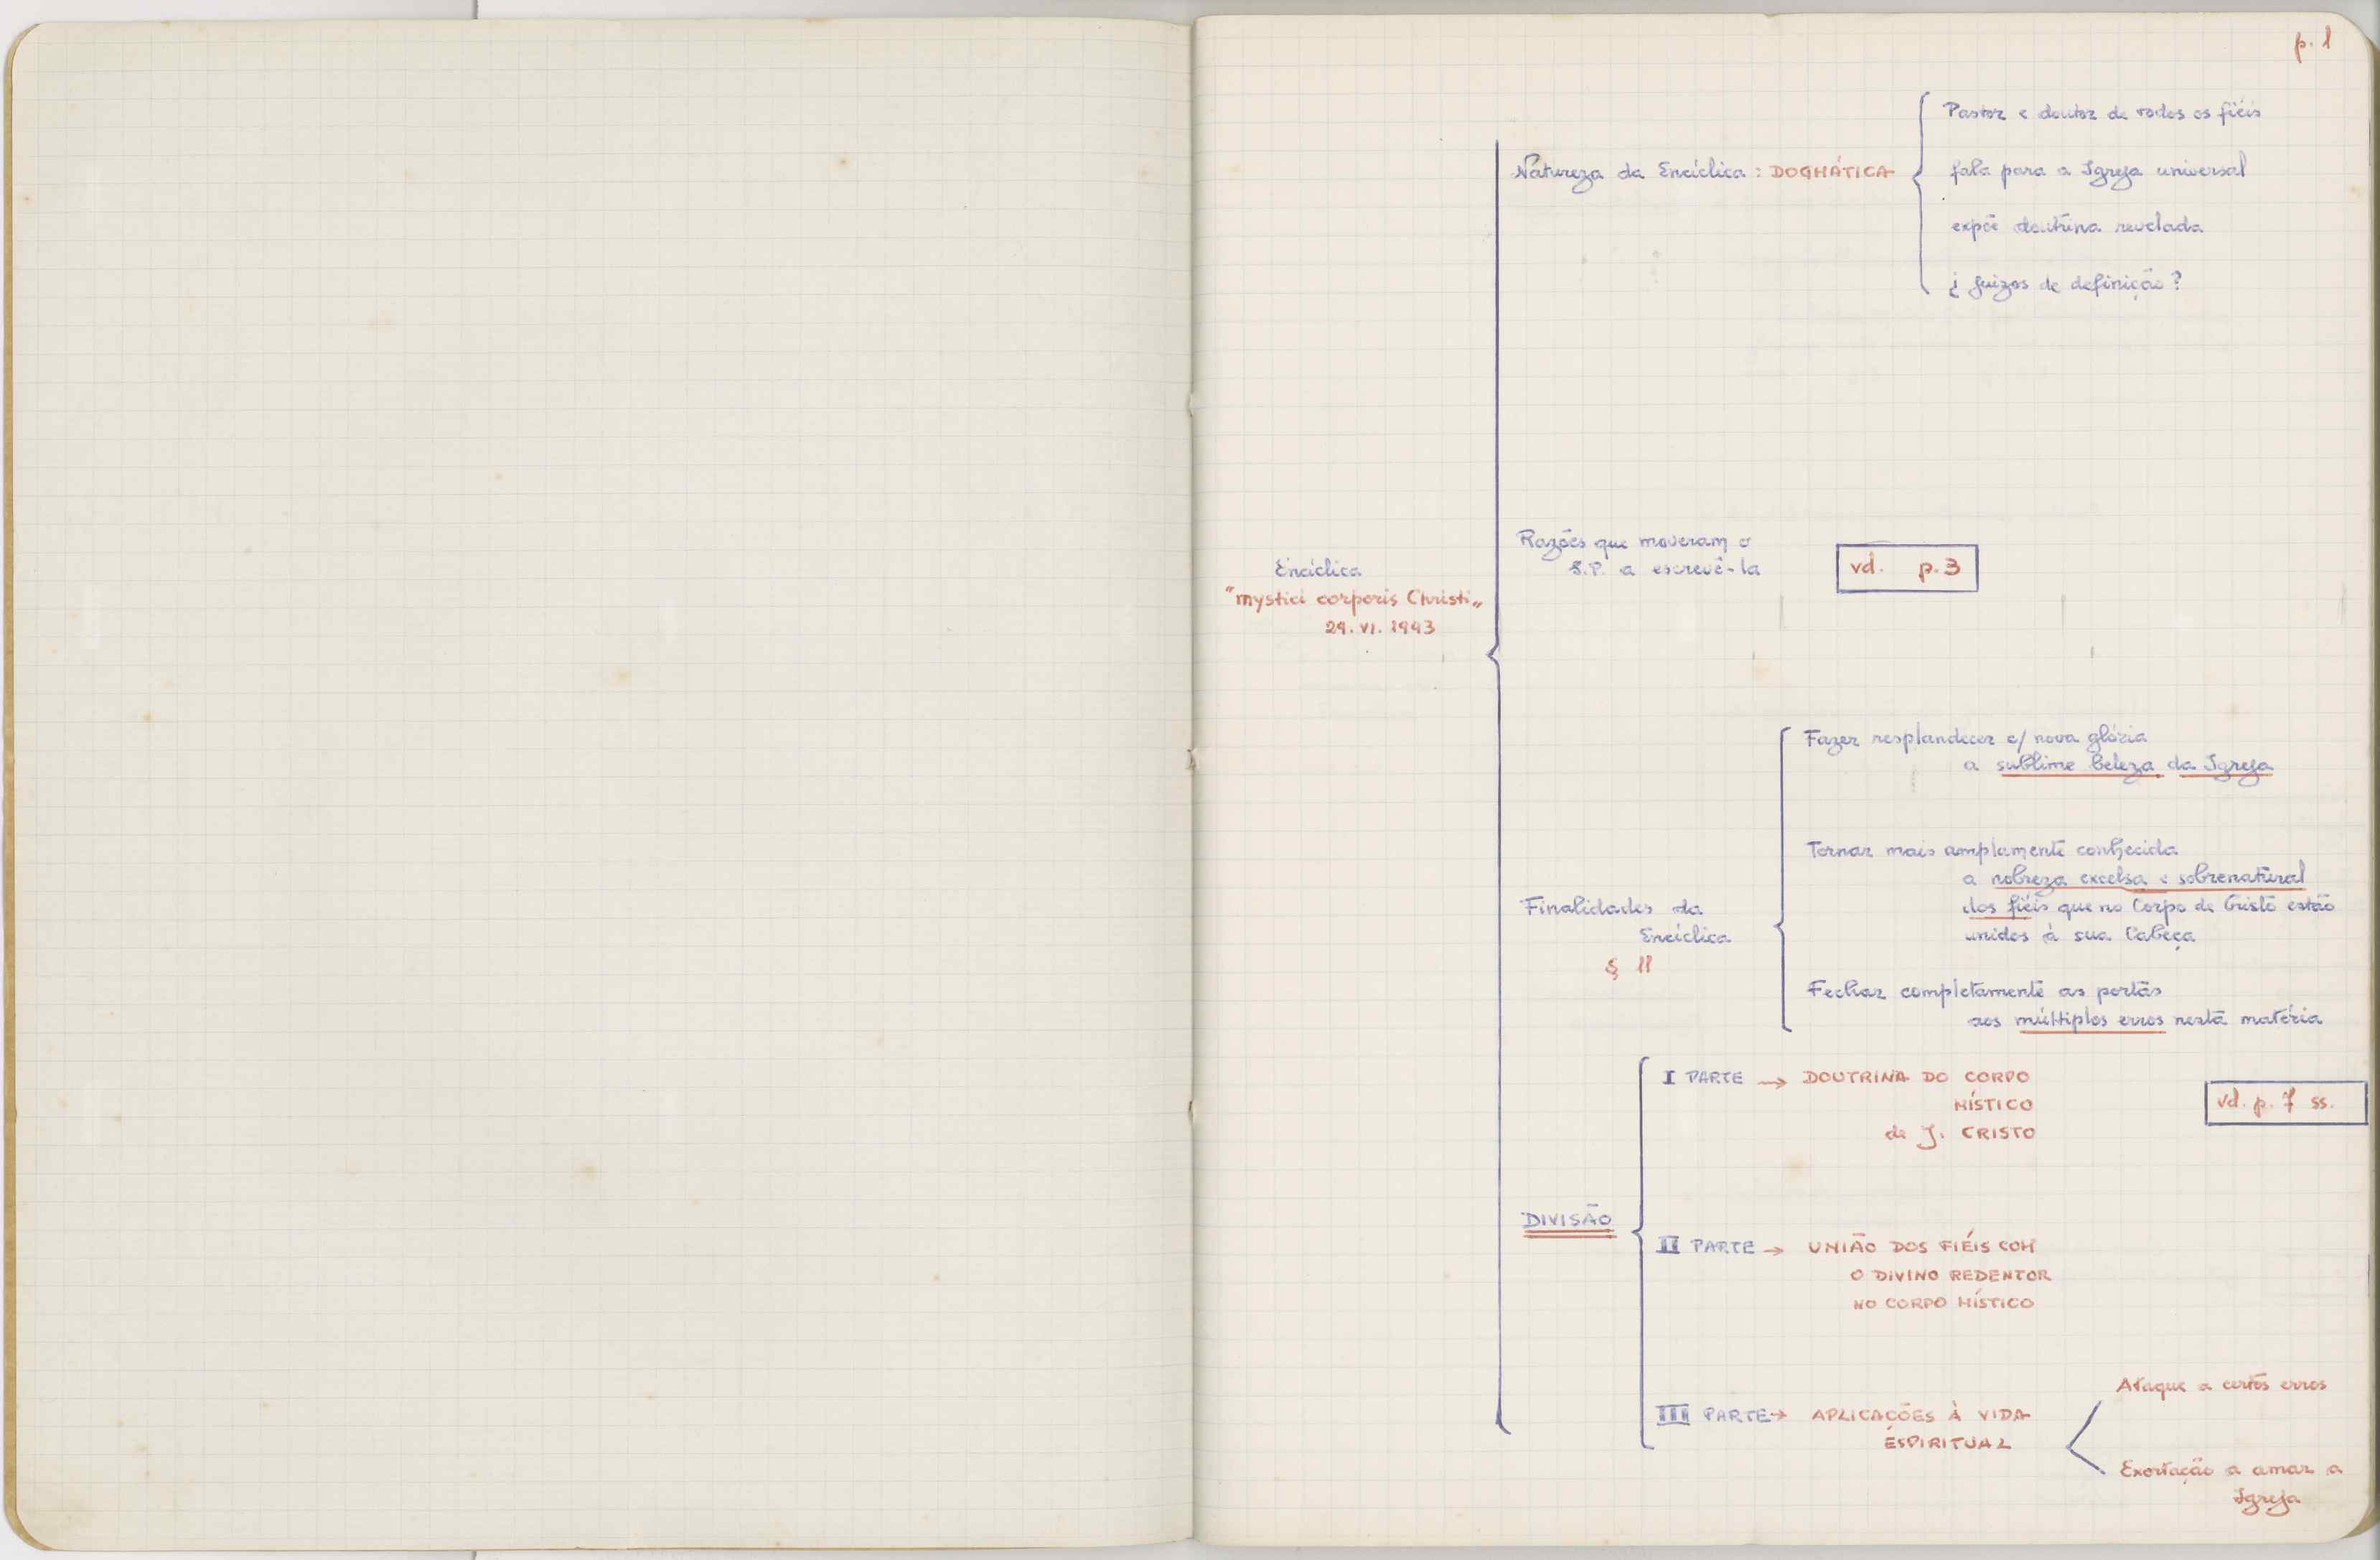 p. 1
Pastor e doutor de todos os fiéis
Natureza da Encíclica : DOGMÁTICA
fala para a Igreja universal
expõe doutrina revelada
¿ juizos de definição ?
Razões que moveram o
S.P. a escrevê-la
vd. p.3
Encíclica
"mystici corporis Christi„
29. VI. 1943
Fazer resplandecer c/ nova glória
a sublime beleza da Igreja
Tornar mais amplamente conhecida
a nobreza excelsa e sobrenatural
dos fiéis que no Corpo de Cristo estão
unidos à sua Cabeça
Finalidades da
Encíclica
§ 11
Fechar completamente as portas
aos múltiplos erros nesta matéria
I PARTE → DOUTRINA DO CORPO
MÍSTICO
de J. CRISTO
vd. p. 7 ss.
DIVISÃO
II PARTE → UNIÃO DOS FIÉIS COM
O DIVINO REDENTOR
NO CORPO MÍSTICO
III PARTE → APLICAÇÕES À VIDA
ESPIRITUAL
Ataque a certos erros
Exortação a amar a
Igreja